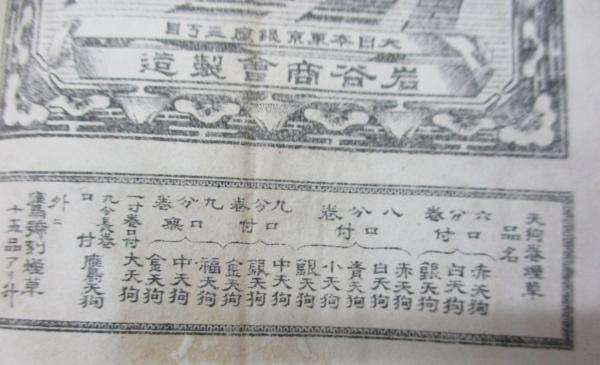 大日本東京銀座三丁目
岩谷商會製造
天狗巻煙草
品名
六分巻口付
赤天狗
白天狗
銀天狗
八分巻口付
赤天狗
白天狗
青天狗
小天狗
銀天狗
九分巻口付
中天狗
銀天狗
金天狗
九分巻口
福天狗
中天狗
金天狗
一寸巻口付
大天狗
九分長巻口付
天狗
外ニ
刻煙草
十五品アリ升